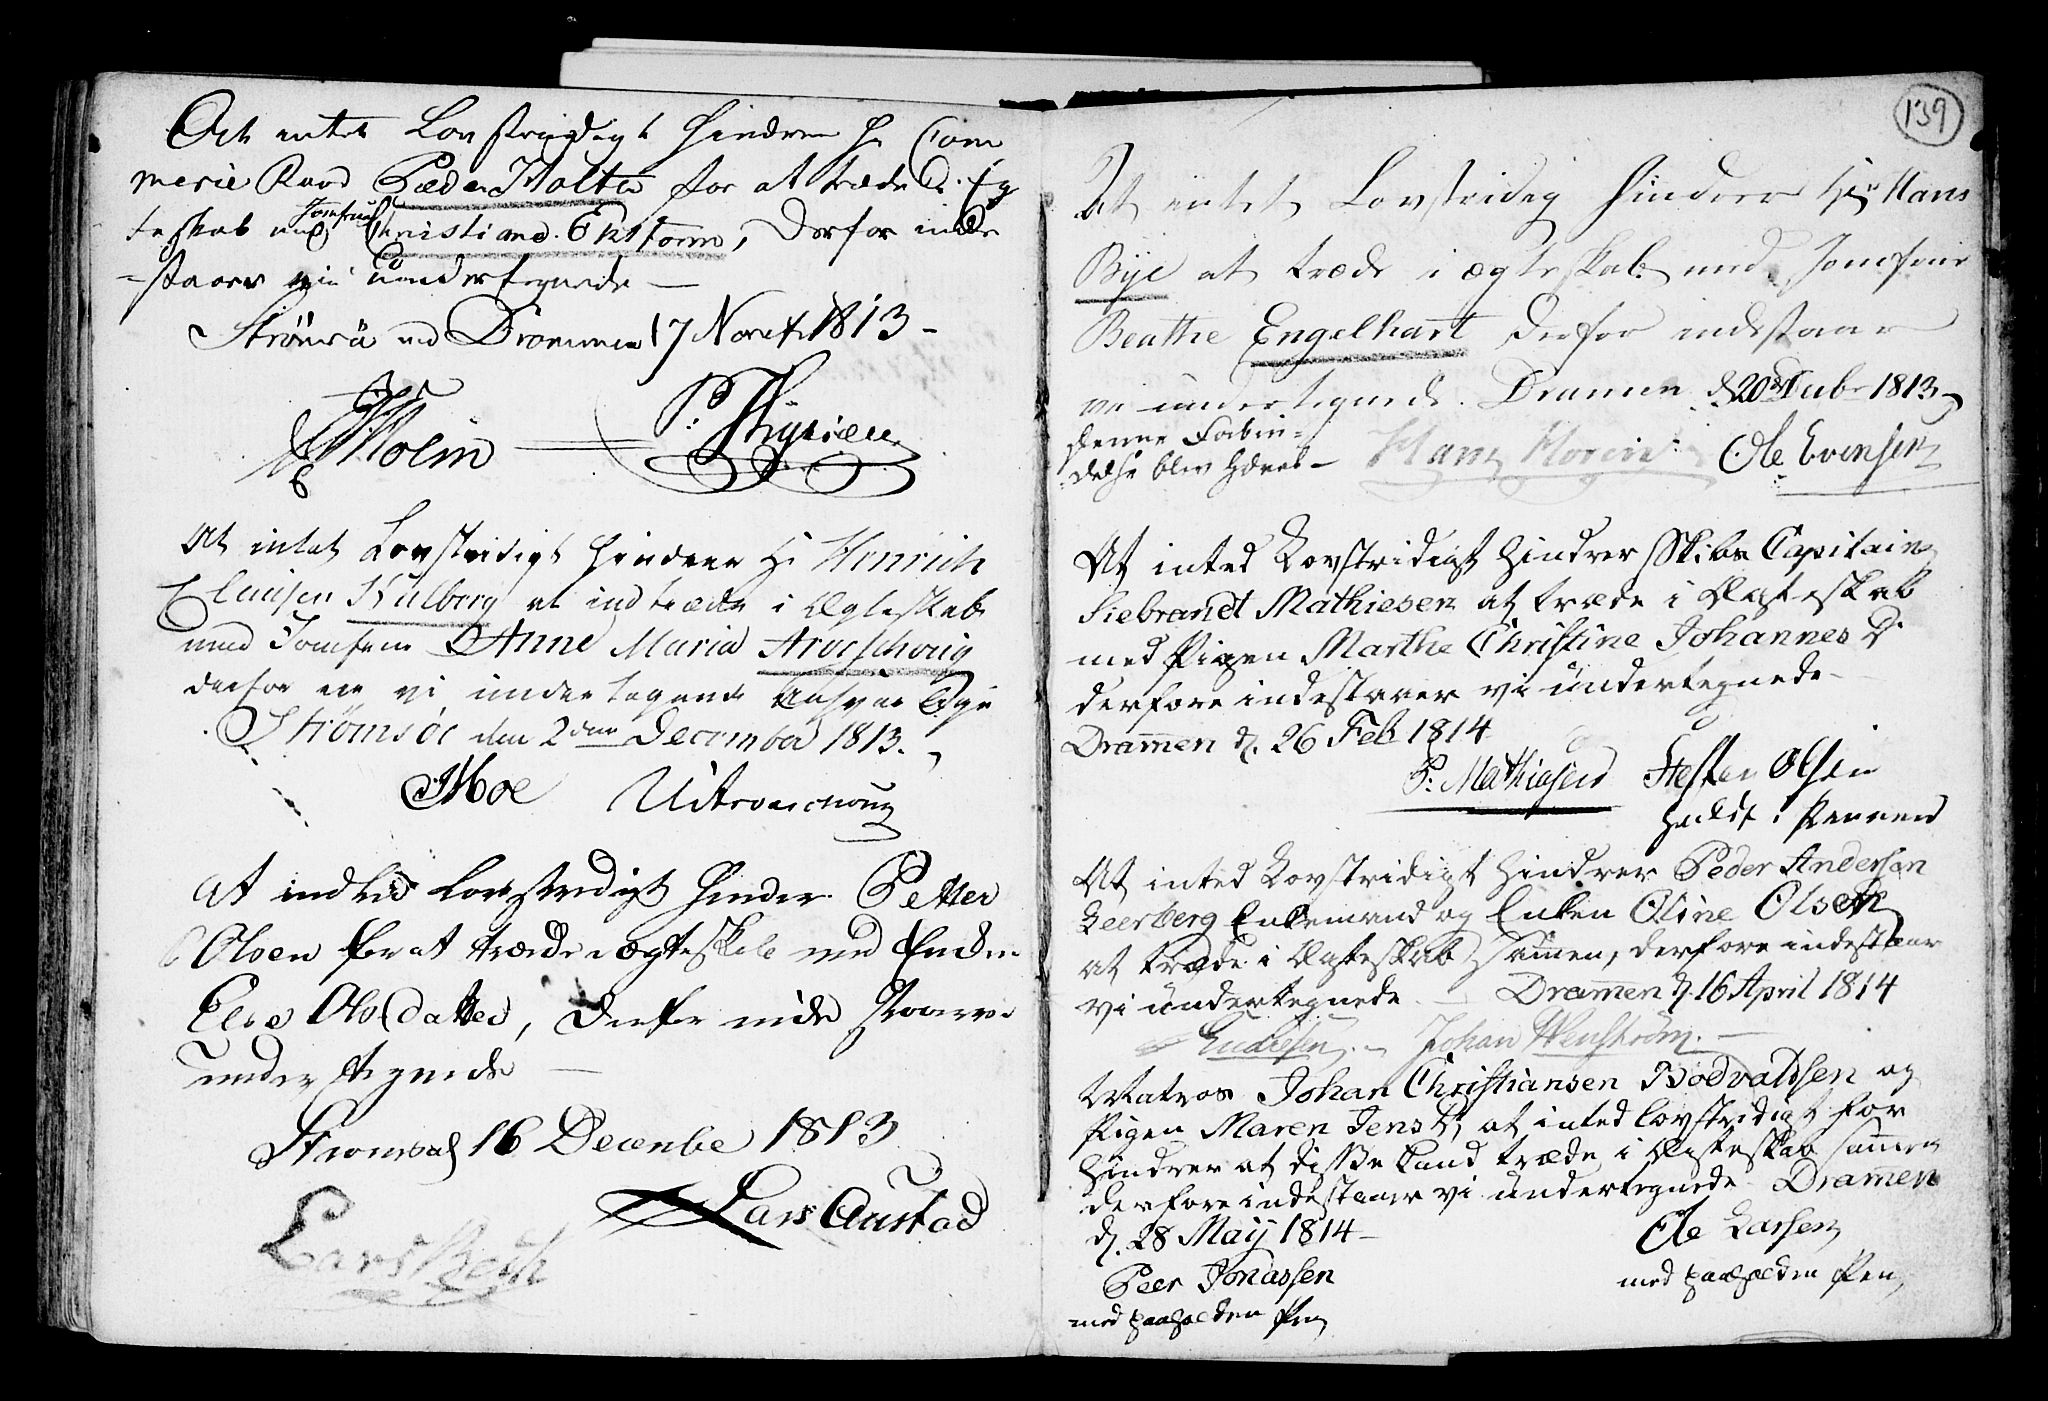 At intet Lovstridigt hindrer H. Com
merie Raad Peder Holter for at træde i Eg
teskab med Jomfrue Christiane Ekstorm, derfor inde
-staaer vi undertegnede —
Strömsö ved Drammen 17 Novebr 1813 -
Holm P: Thyrisen
At intet Lovstridigt hindrer Hr Henrich
Clausen Hulberg at indtræde i Ægteskab
med Jomfrue Anne Maria
derfor ere vi undertegnede
Strømsöe den 2den December 1813.
Moe
At indted Lovstredigt hinder Petter
Olsen for at træde i ægteskab med Enken
Else Olsdatter, derfor inde staar vi
undertegnede —
Stromsöe 16 Decembe 1813
Lars Austad
Lars Beth
139
At intet Lovstridig hindrer Hr Hans
Bye at træde i ægteskab med Jomfrue
Beathe Engelhart derfor indestaar
vi undertegnede. Dramen d. 20 Decbr 1813
denne Forbin=
delse blev hævet - Hans Ole Evensen
At inted Lovstridigt hindrer Skibs Capitain
Siebrandt Mathiesen at træde i Ægteskab
med Pigen Marthe Christine Johannes D.
derfore indestaaer vi undertegnede -
Dramen d. 26 Feb 1814
P. Mathiesen Steffen Olsen
holdt i Pennen
At inted Lovstridigt hindrer Peder Andersen
Leerberg Enkemand og Enken Oline Olsdtr
at træde i Ægteskab samen, derfore indestaar
vi undertegnede. — Dramen d. 16 April 1814
Endresen. - Johan Wenström. -
Matros Johan Christiansen Bodvaldsen og
Pigen Maren Jens D, at inted lovstridigt for
hindrer at disse kand træde i Ægteskab samen
derfore indestaaer vi undertegnede Dramen
d. 28 May 1814 -
Ole Larsen
Peer Jonassen
med paaholden Pen,
med paaholden Pen